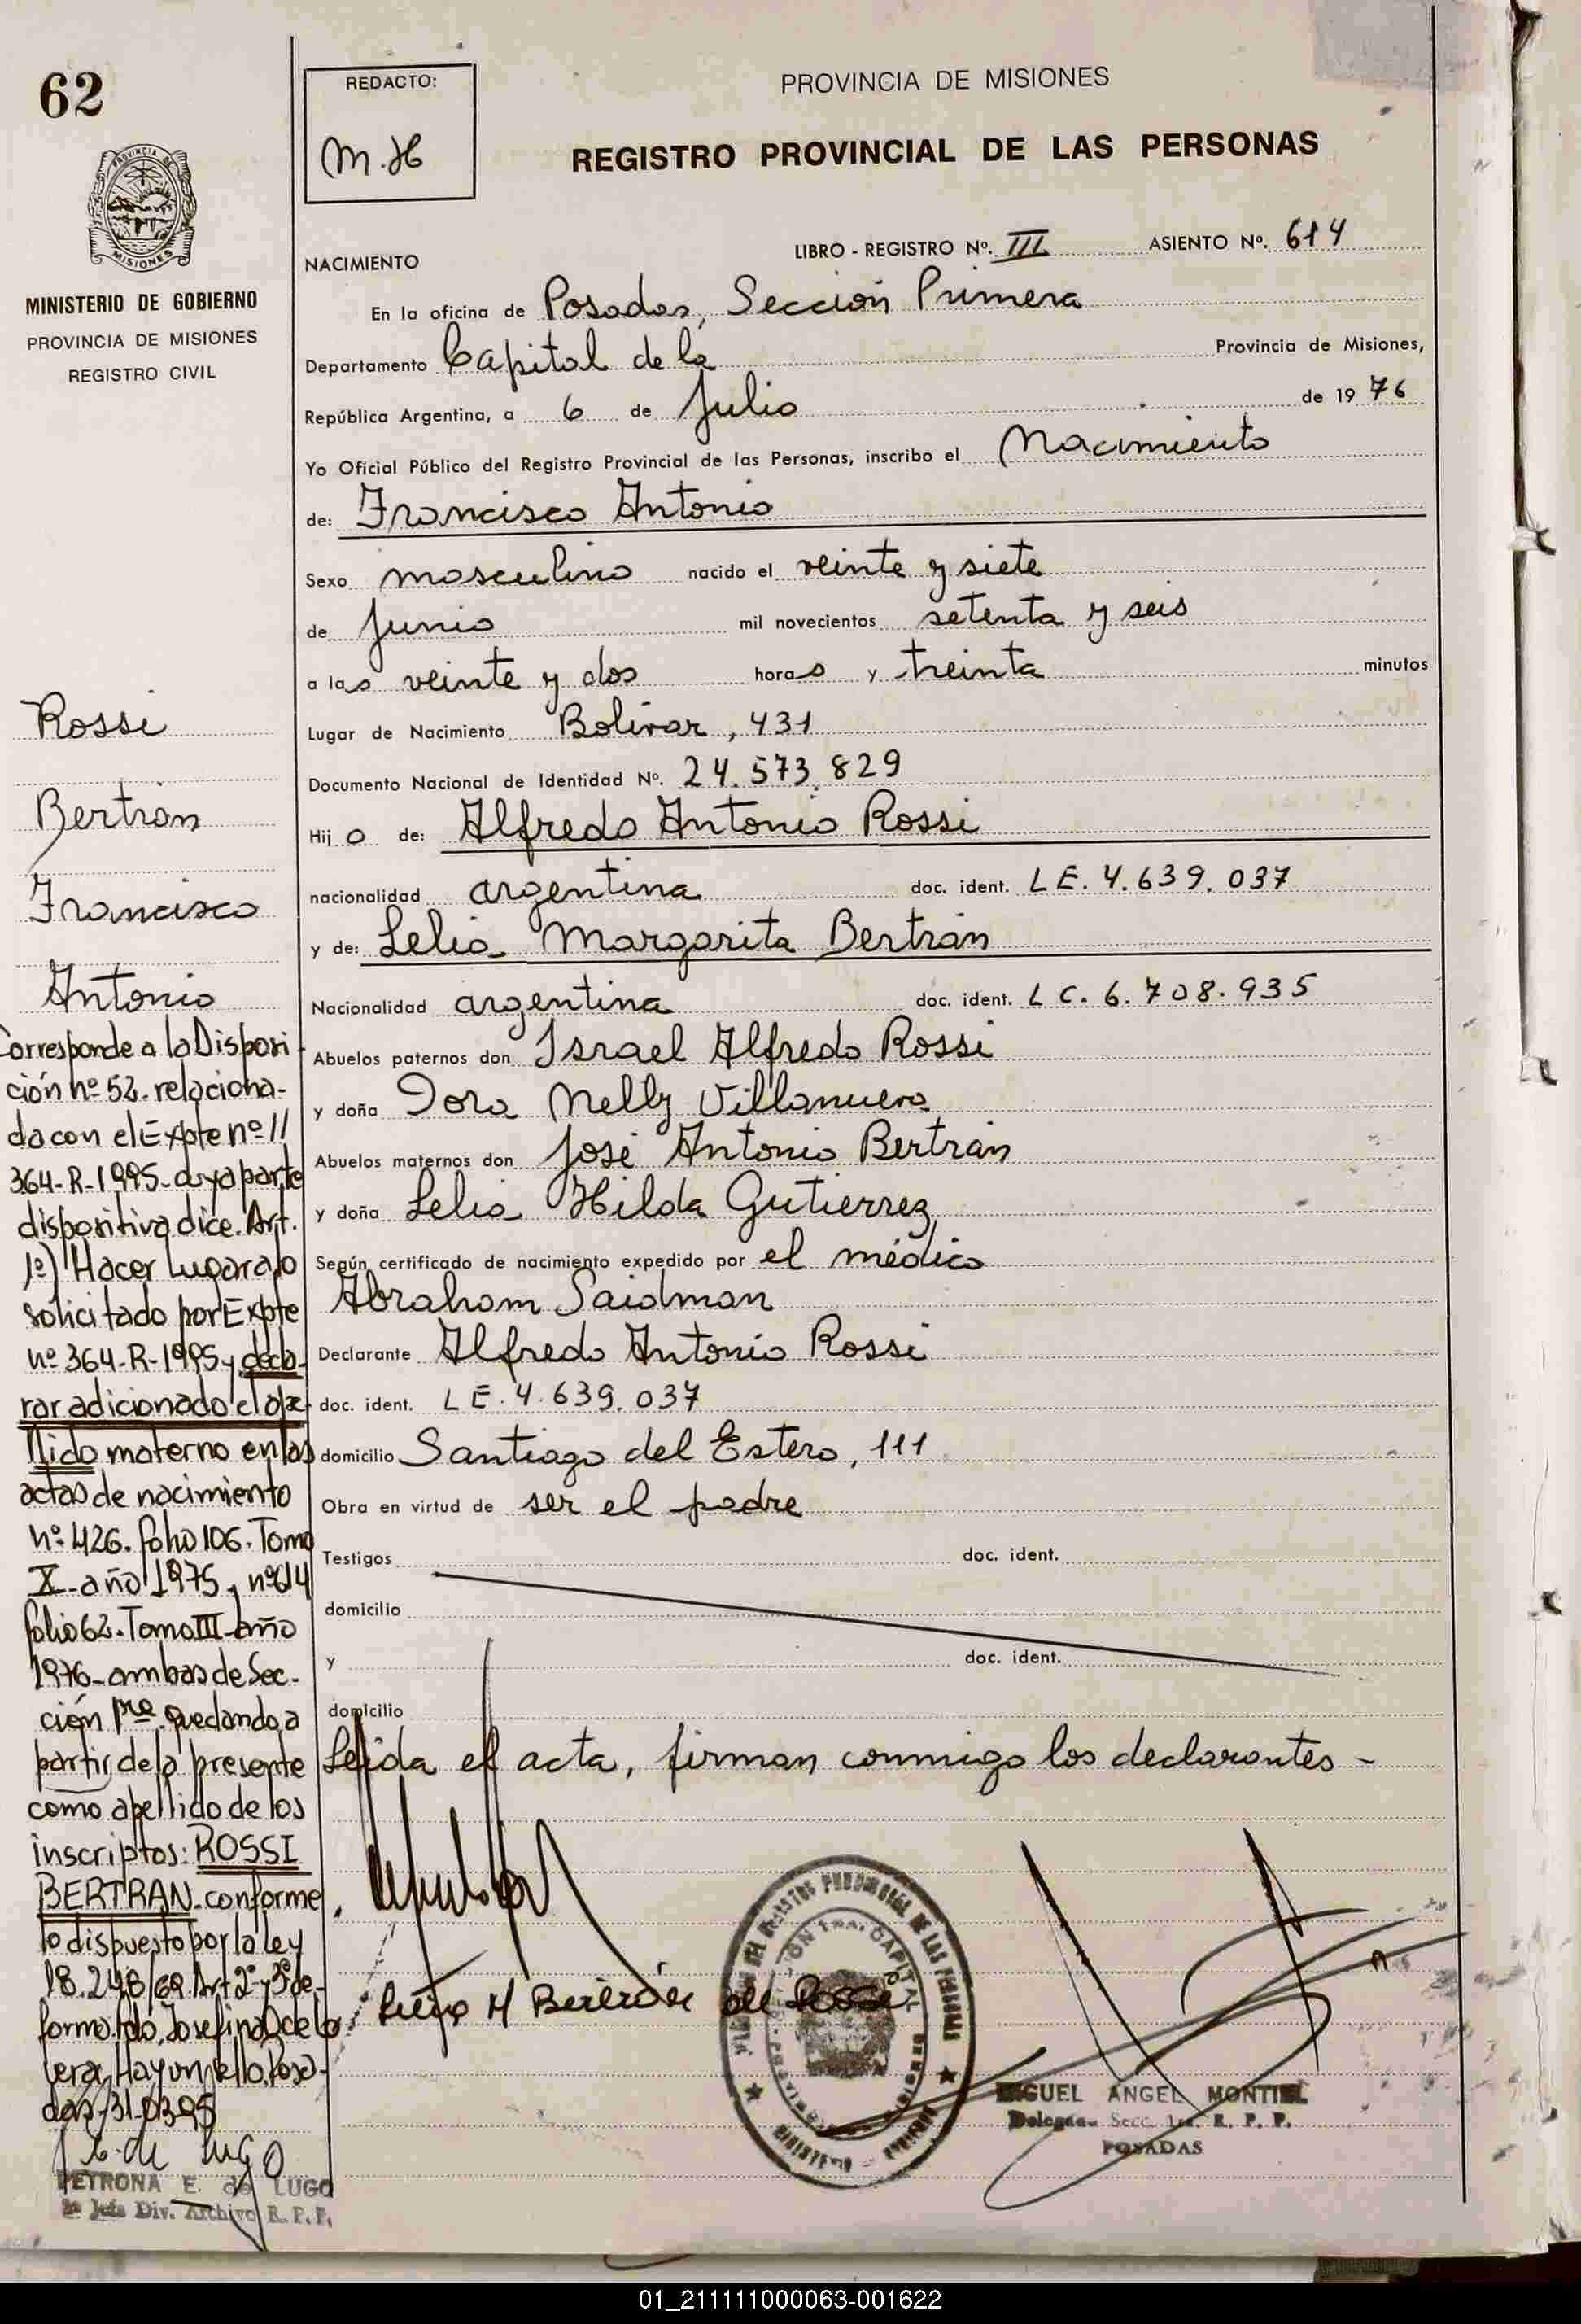 62
REDACTO:
M.H
PROVINCIA DE MISIONES
REGISTRO PROVINCIAL DE LAS PERSONAS
PROVINCIA DE
MISIONES
MINISTERIO DE GOBIERNO
PROVINCIA DE MISIONES
REGISTRO CIVIL
NACIMIENTO
LIBRO - REGISTRO Nº. III ASIENTO Nº. 614
En la oficina de Posadas, Sección Primera
Departamento Capital de la Provincia de Misiones,
República Argentina, a 6 de Julio de 1976
Yo Oficial Público del Registro Provincial de las Personas, inscribo el Nacimiento
de: Francisco Antonio
Sexo masculino nacido el veinte y siete
de Junio mil novecientos setenta y seis
a las veinte y dos horas y treinta minutos
Lugar de Nacimiento Bolívar, 431
Documento Nacional de Identidad Nº. 24.573.829
Hijo de: Alfredo Antonio Rossi
nacionalidad argentina doc. ident. LE. 4.639.037
y de: Lelia Margarita Bertrán
Nacionalidad argentina doc. ident. LC. 6.708.935
Abuelos paternos don Israel Alfredo Rossi
y doña Dora Nelly Villanueva
Abuelos maternos don José Antonio Bertrán
y doña Lelia Hilda Gutierrez
Según certificado de nacimiento expedido por el médico
Abraham Saidman
Declarante Alfredo Antonio Rossi
doc. ident. LE. 4.639.037
domicilio Santiago del Estero, 111
Obra en virtud de ser el padre
Testigos doc. ident.
domicilio
y doc. ident.
domicilio
Leída el acta, firman conmigo los declarantes -
Rossi
Bertrán
Francisco
Antonio
Corresponde a la Disposi-
ción nº 52. relaciona-
da con el Expte nº 11
364-R-1995-cuya parte
dispositiva dice. Art.
1º) Hacer Lugar a lo
solicitado por Expte
nº 364-R-1995 y decla-
rar adicionado el ape-
llido materno en las
actas de nacimiento
nº 426. folio 106. Tomo
X-año 1975 y nº 614
folio 62. Tomo III-año
1976-ambas de Sec-
ción 1ra. quedando a
partir de la presente
como apellido de los
inscriptos: ROSSI
BERTRAN-conforme
lo dispuesto por la ley
18.248/69 Art 2º y 3º de-
forma. fdo. Josefina O de
Posa-
das-31-03-95
E. de Lugo
PETRONA E. de LUGO
Jefa Div. Archivo R.P.P.
M Bertrán de Rossi
CAPITAL
MIGUEL ANGEL MONTIEL
Secc. 1ra. R. P. P.
POSADAS
01_211111000063-001622